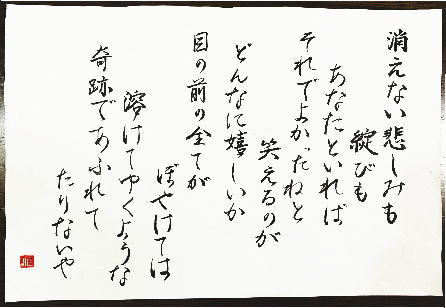 消えない悲しみも
綻びも
あなたといれば
それでよかったねと
笑えるのが
どんなに嬉しいか
目の前の全てが
ぼやけては
溶けてゆくような
奇跡であふれて
たりないや